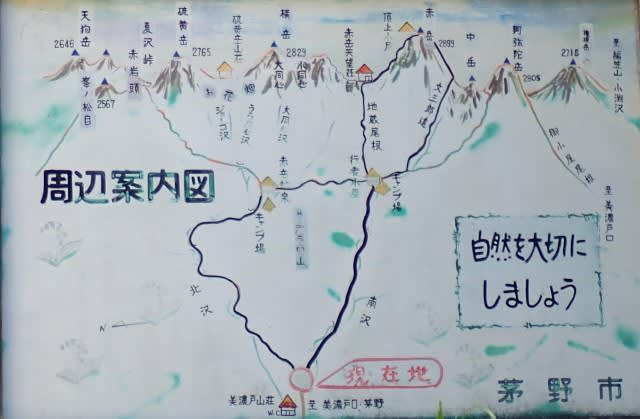 天狗岳
2646
夏沢峠
硫黄岳
2765
硫黄岳山荘
横岳
2829
赤岳天望荘
頂上小屋
赤岳
2899
中岳
阿弥陀岳
2805
峯ノ松目
2567
赤岩頭
大同心
小同心
大同心沢
地蔵尾根
文三郎道
御小屋尾根
至美濃戸口
赤岳鉱泉
行者小屋
キャンプ場
キャンプ場
中山
周辺案内図
自然を大切に
しましょう
北沢
南沢
N
現在地
美濃戸山荘
W.C
至美濃戸口・茅野
茅野市